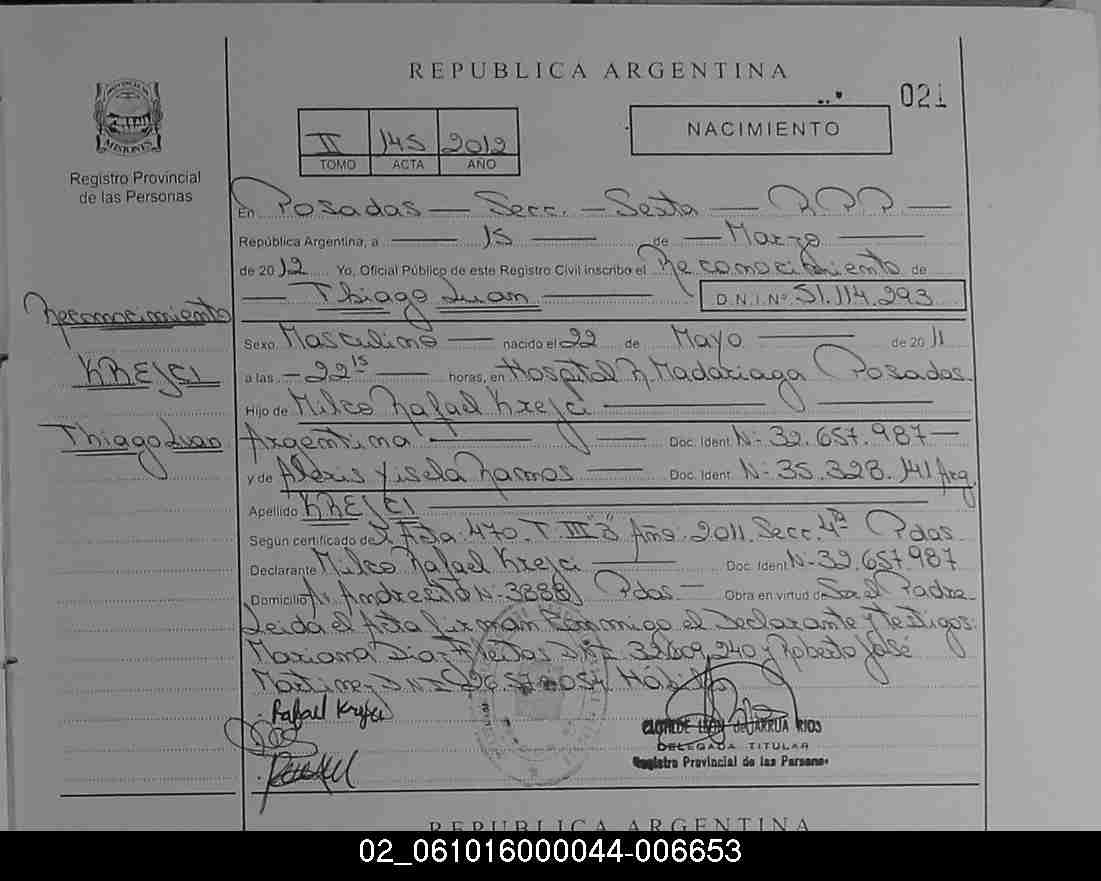 REPUBLICA ARGENTINA
021
NACIMIENTO
II 145 2012
TOMO ACTA AÑO
MISIONES
Registro Provincial
de las Personas
En Posadas — Secc. — Sexta — RPP —
República Argentina, a — 15 — de — Marzo —
de 2012 Yo, Oficial Público de este Registro Civil inscribo el Reconocimiento de
— Thiago Luan — D.N.I. Nº 51.114.293
Reconocimiento
KREJCI
Thiago Luan
Sexo Masculino — nacido el 22 de Mayo — de 2011
a las — 22 15 — horas, en Hospital R. Madariaga Posadas
Hijo de Milco Rafael Krejci —
Argentina — Doc. Ident. Nº 32.657.987 —
y de Alexis Yisela Ramos — Doc. Ident. Nº 35.328.141 Arg
Apellido KREJCI —
Según certificado de Acta: 470. T. III "B" Año: 2011. Secc. 4ª Pdas.
Declarante Milco Rafael Krejci — Doc. Ident. Nº 32.657.987
Domicilio Av. Andresito Nº 3888 Pdas — Obra en virtud de Ser el Padre
Leida el Acta Firman Conmigo el Declarante y Testigos:
Mariana Diaz DNI 32609240 y Roberto José
Martinez DNI
Rafael Krejci
CLOTILDE LEON de JARRUA RIOS
DELEGADA TITULAR
Registro Provincial de las Personas
REPUBLICA ARGENTINA
02_061016000044-006653